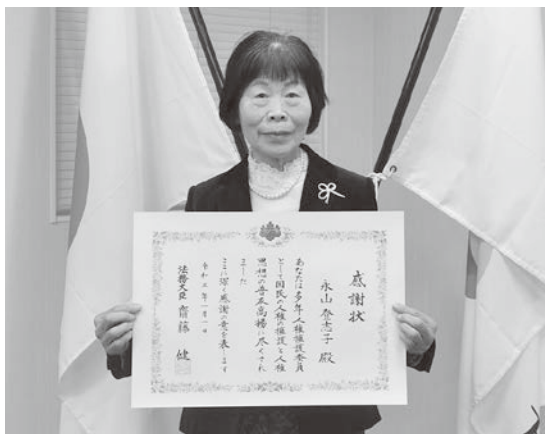 感謝状
永山登志子 殿
あなたは多年人権擁護委員
として国民の人権の擁護と人権
思想の普及高揚に尽くされ
ました
ここに深く感謝の意を表します
令和五年一月一日
法務大臣 齋藤 健